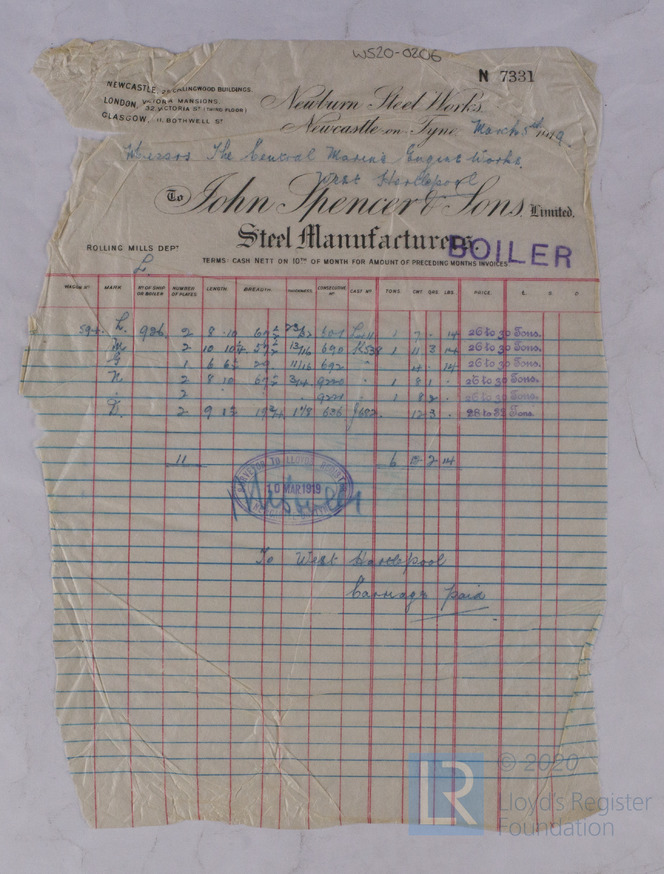 WS20-0206
N 7331
NEWCASTLE, COLLINGWOOD BUILDINGS.
LONDON, VICTORIA MANSIONS,
32 VICTORIA ST (THIRD FLOOR)
GLASGOW, 11, BOTHWELL ST
Newburn Steel Works.
Newcastle on Tyne, March 5th 1919.
Messrs The Central Marine Engine Works.
West Hartlepool
To John Spencer & Sons Limited,
Steel Manufacturers.
BOILER
ROLLING MILLS DEPT
L
TERMS: CASH NETT ON 10TH OF MONTH FOR AMOUNT OF PRECEDING MONTHS INVOICES
WAGON Nº MARK Nº OF SHIP OR BOILER NUMBER OF PLATES LENGTH BREADTH THICKNESS CONSECUTIVE Nº CAST Nº TONS CWT QRS LBS PRICE £ S D
L. 926 2 8 10 1 14 26 to 30 Tons.
2 10 13/16 690 K538 1 11 3 14 26 to 30 Tons.
1 6 29 11/16 692 " 14 26 to 30 Tons.
2 8 10 3/4 9220 " 1 8 1 26 to 30 Tons.
" 2 9221 " 1 8 2 26 to 30 Tons.
2 9 1 1/8 636 12 3 28 to 32 Tons.
11 6 2 14
SURVEYOR TO LLOYD'S REGISTER
10 MAR 1919
To West Hartlepool
Carriage paid
LR
© 2020
Lloyd's Register
Foundation